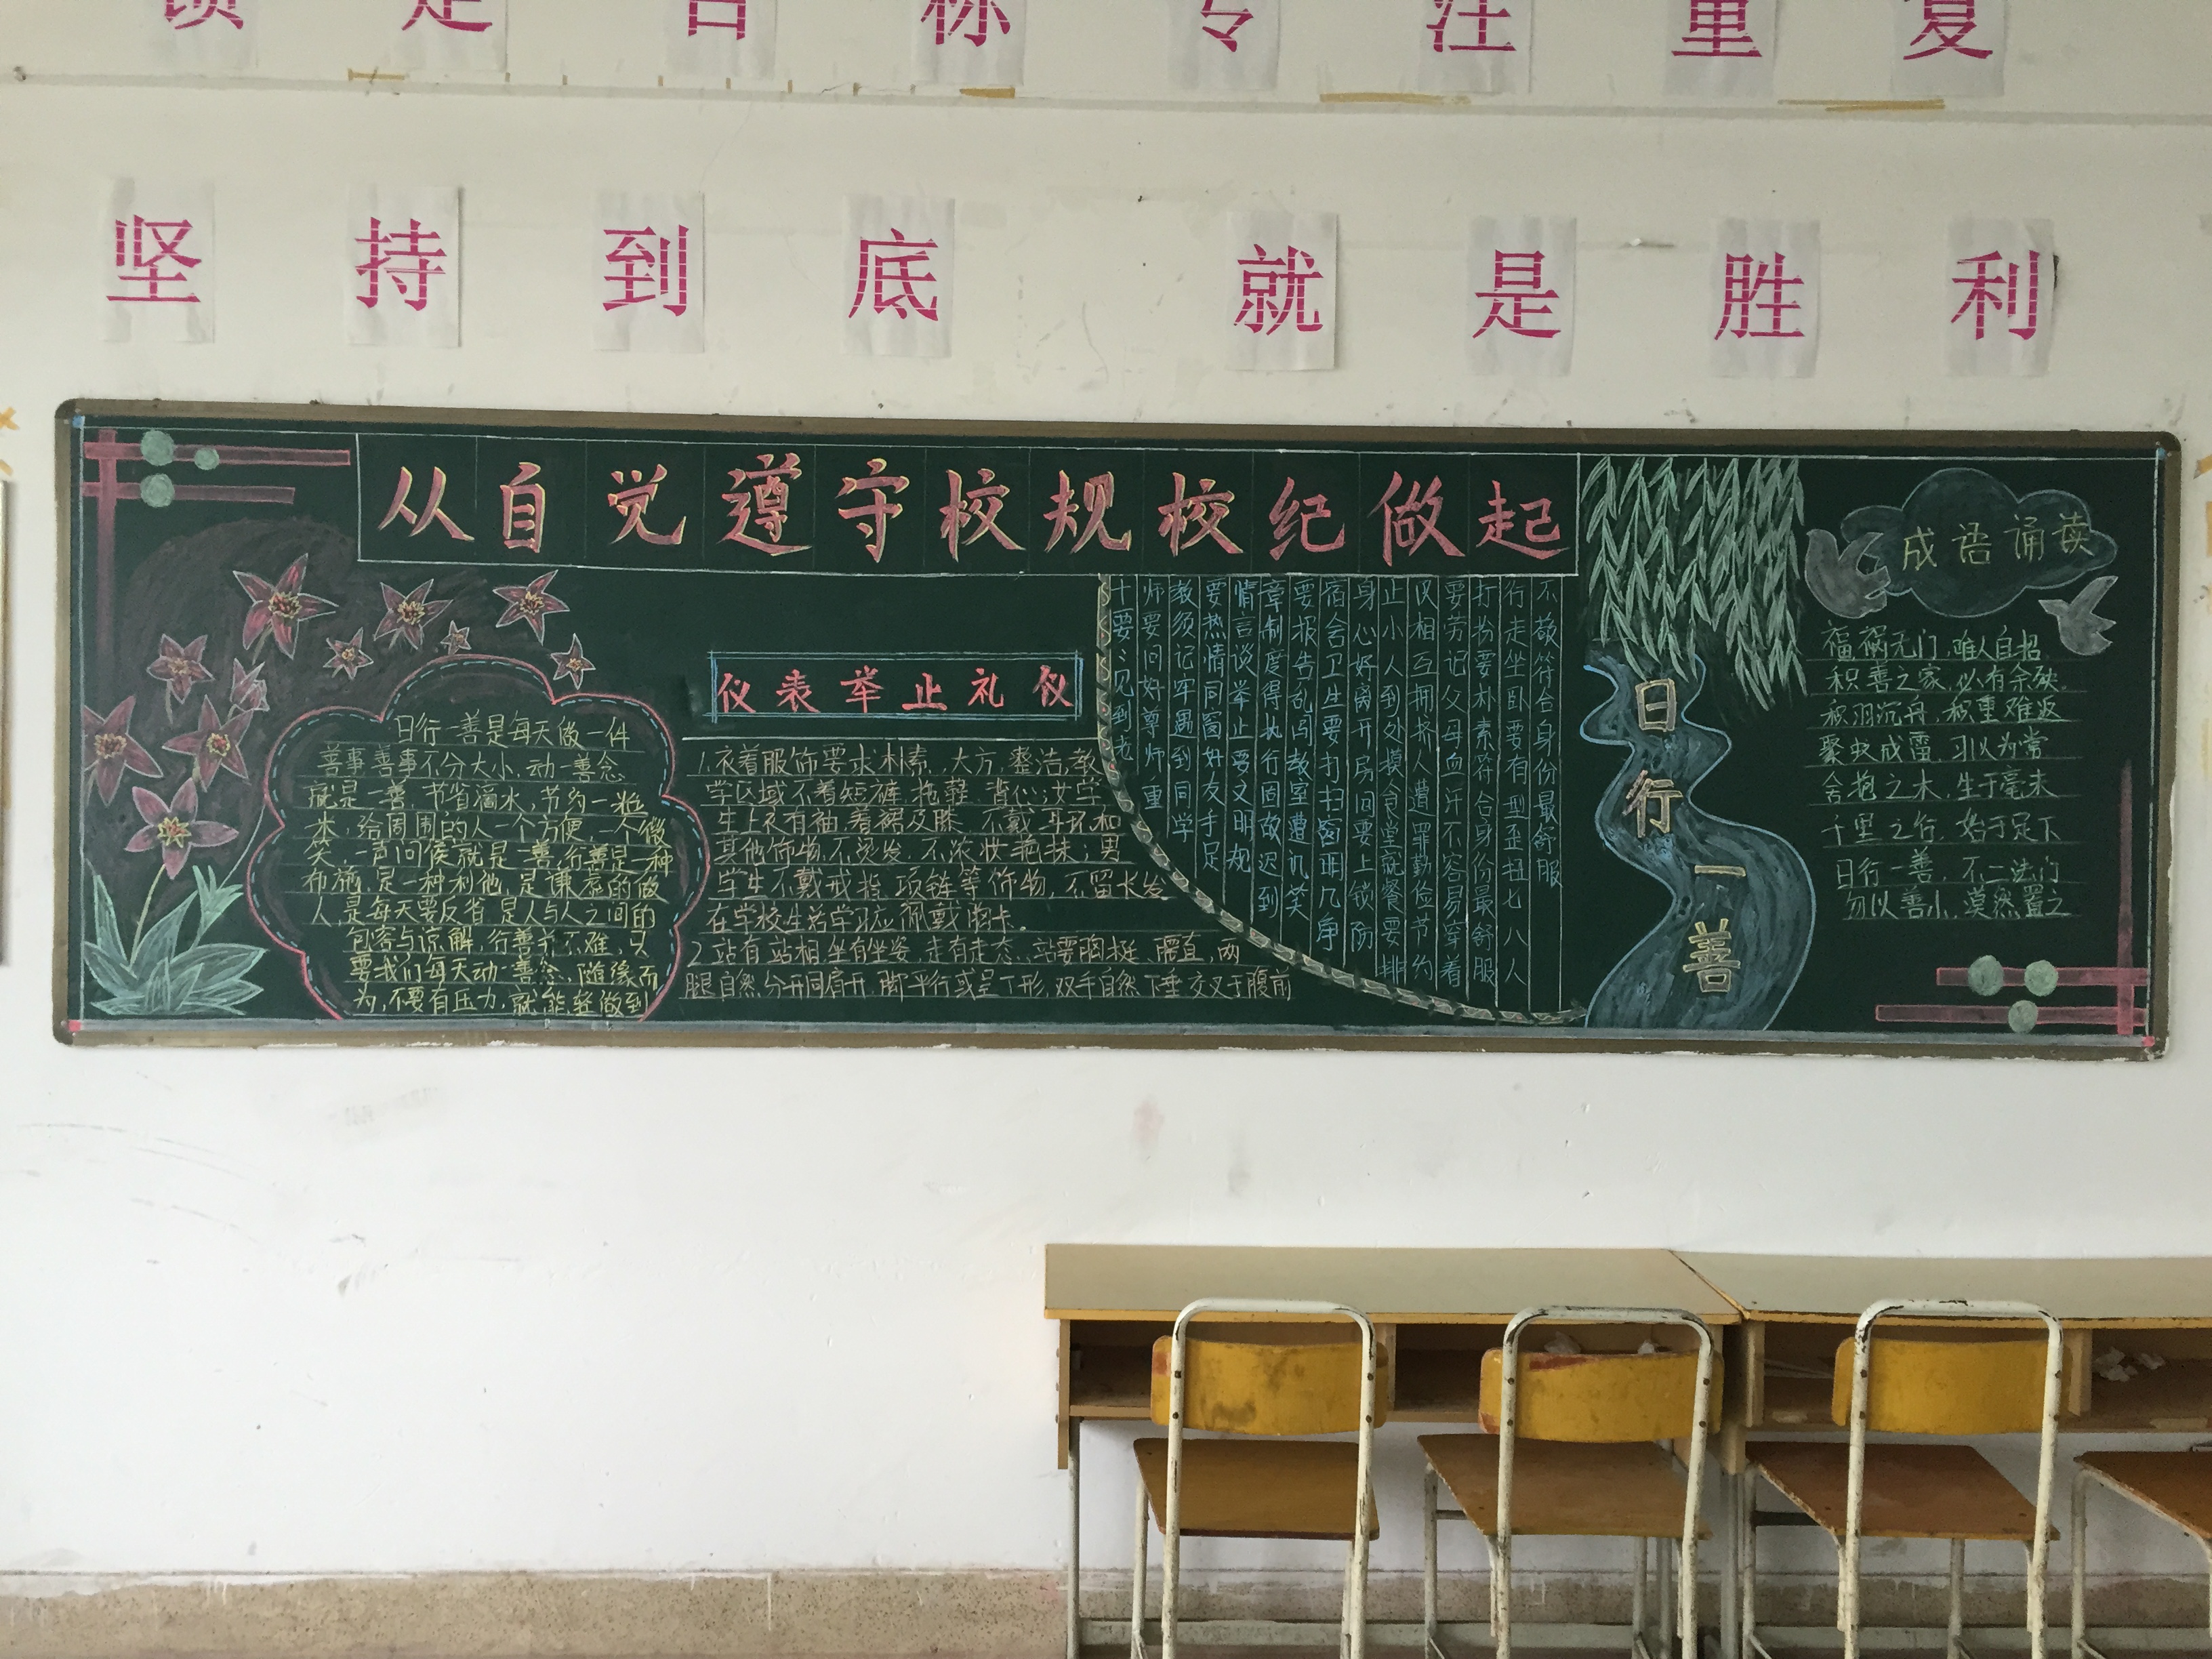 锁定目标 专注重复
坚持到底 就是胜利
从自觉遵守校规校纪做起
日行一善是每天做一件
善事善事不分大小,动一善念
就是一善,节省滴水,节约一粒
米,给周围的人一个方便,一个微
笑,一声问侯就是一善,行善是一种
布施,是一种利他,是谦卑的做
人,是每天要反省,是人与人之间的
包容与谅解,行善并不难,只
要我们每天动一善念、随缘而
为,不要有压力,就能轻做到
仪表举止礼仪
1.衣着服饰要求:朴素、大方、整洁,教
学区域不着短裤、拖鞋、背心;女学
生上衣有袖、着裙及膝、不戴耳环和
其他饰物、不烫发、不浓妆艳抹;男
学生不戴戒指、项链等饰物,不留长发
在学校生活学习应佩戴胸卡
2.站有站相,坐有坐姿,走有走态.站要胸挺、腰直,两
腿自然分开同肩开,脚平行或呈丁形,双手自然下垂交叉于腹前
不敌符合身份最舒服
行走坐卧要有型歪扭七八人
打扮要朴素符合身份最舒服
要劳记父母血汗不容易穿着
仪相互拥挤人遭罪勤俭节约
止小人到处摸食堂就餐要排
身心好离开房间要上锁防
宿舍卫生要打扫窗明几净
要报告乱闯教室遭人笑
章制度得执行因故迟到
情言谈举止要文明规
要热情同窗好友手足
教须记牢遇到同学
师要问好尊师重
十要:见到老
日行一善
成语诵读
福祸无门,唯人自招
积善之家,必有余殃
积羽沉舟,积重难返
聚蚊成雷,习以为常
合抱之木,生于毫末
千里之行,始于足下
日行一善,不二法门
勿以善小,漠然置之